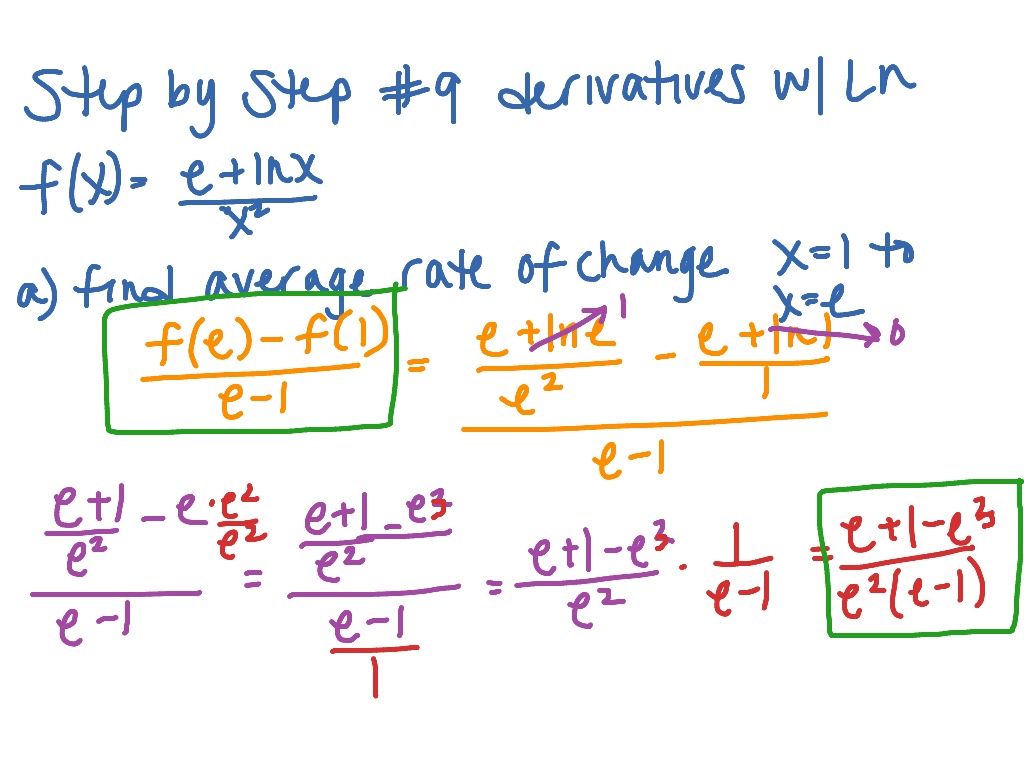 Step by Step #9 derivatives w/ Ln
f(x) = (e + ln x)/x²
a) find average rate of change x = 1 to
x = e
(f(e) − f(1))/(e − 1) = ((e + ln e)/e² − (e + ln 1)/1)/(e − 1) → 1 → 0
((e + 1)/e² − e · e²/e²)/(e − 1) = ((e + 1 − e³)/e²)/((e − 1)/1) = (e + 1 − e³)/e² · 1/(e − 1) = (e + 1 − e³)/(e²(e − 1))